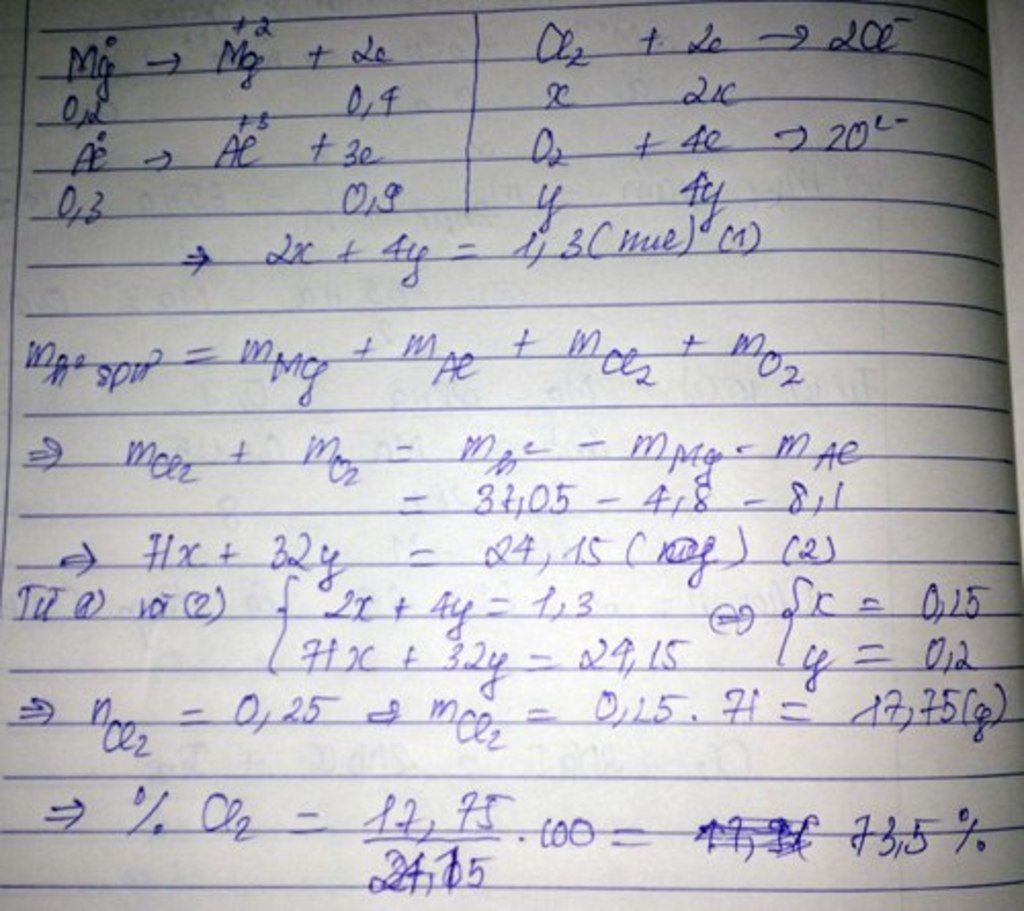 Mg⁰ → Mg⁺² + 2e | Cl₂ + 2e → 2Cl⁻
0,2 0,4 | x 2x
Al⁰ → Al⁺³ + 3e | O₂ + 4e → 2O²⁻
0,3 0,9 | y 4y
⇒ 2x + 4y = 1,3 (mol) (1)
m = m Mg + m Al + m Cl₂ + m O₂
⇒ m Cl₂ + m O₂ = m h² − m Mg − m Al
= 37,05 − 4,8 − 8,1
⇒ 71x + 32y = 24,15 (g) (2)
Từ (1) và (2) { 2x + 4y = 1,3 ⇔ { x = 0,25
71x + 32y = 24,15 y = 0,2
⇒ n Cl₂ = 0,25 ⇒ m Cl₂ = 0,25 . 71 = 17,75 (g)
⇒ % Cl₂ = 17,75 / 24,15 . 100 = 73,5 %